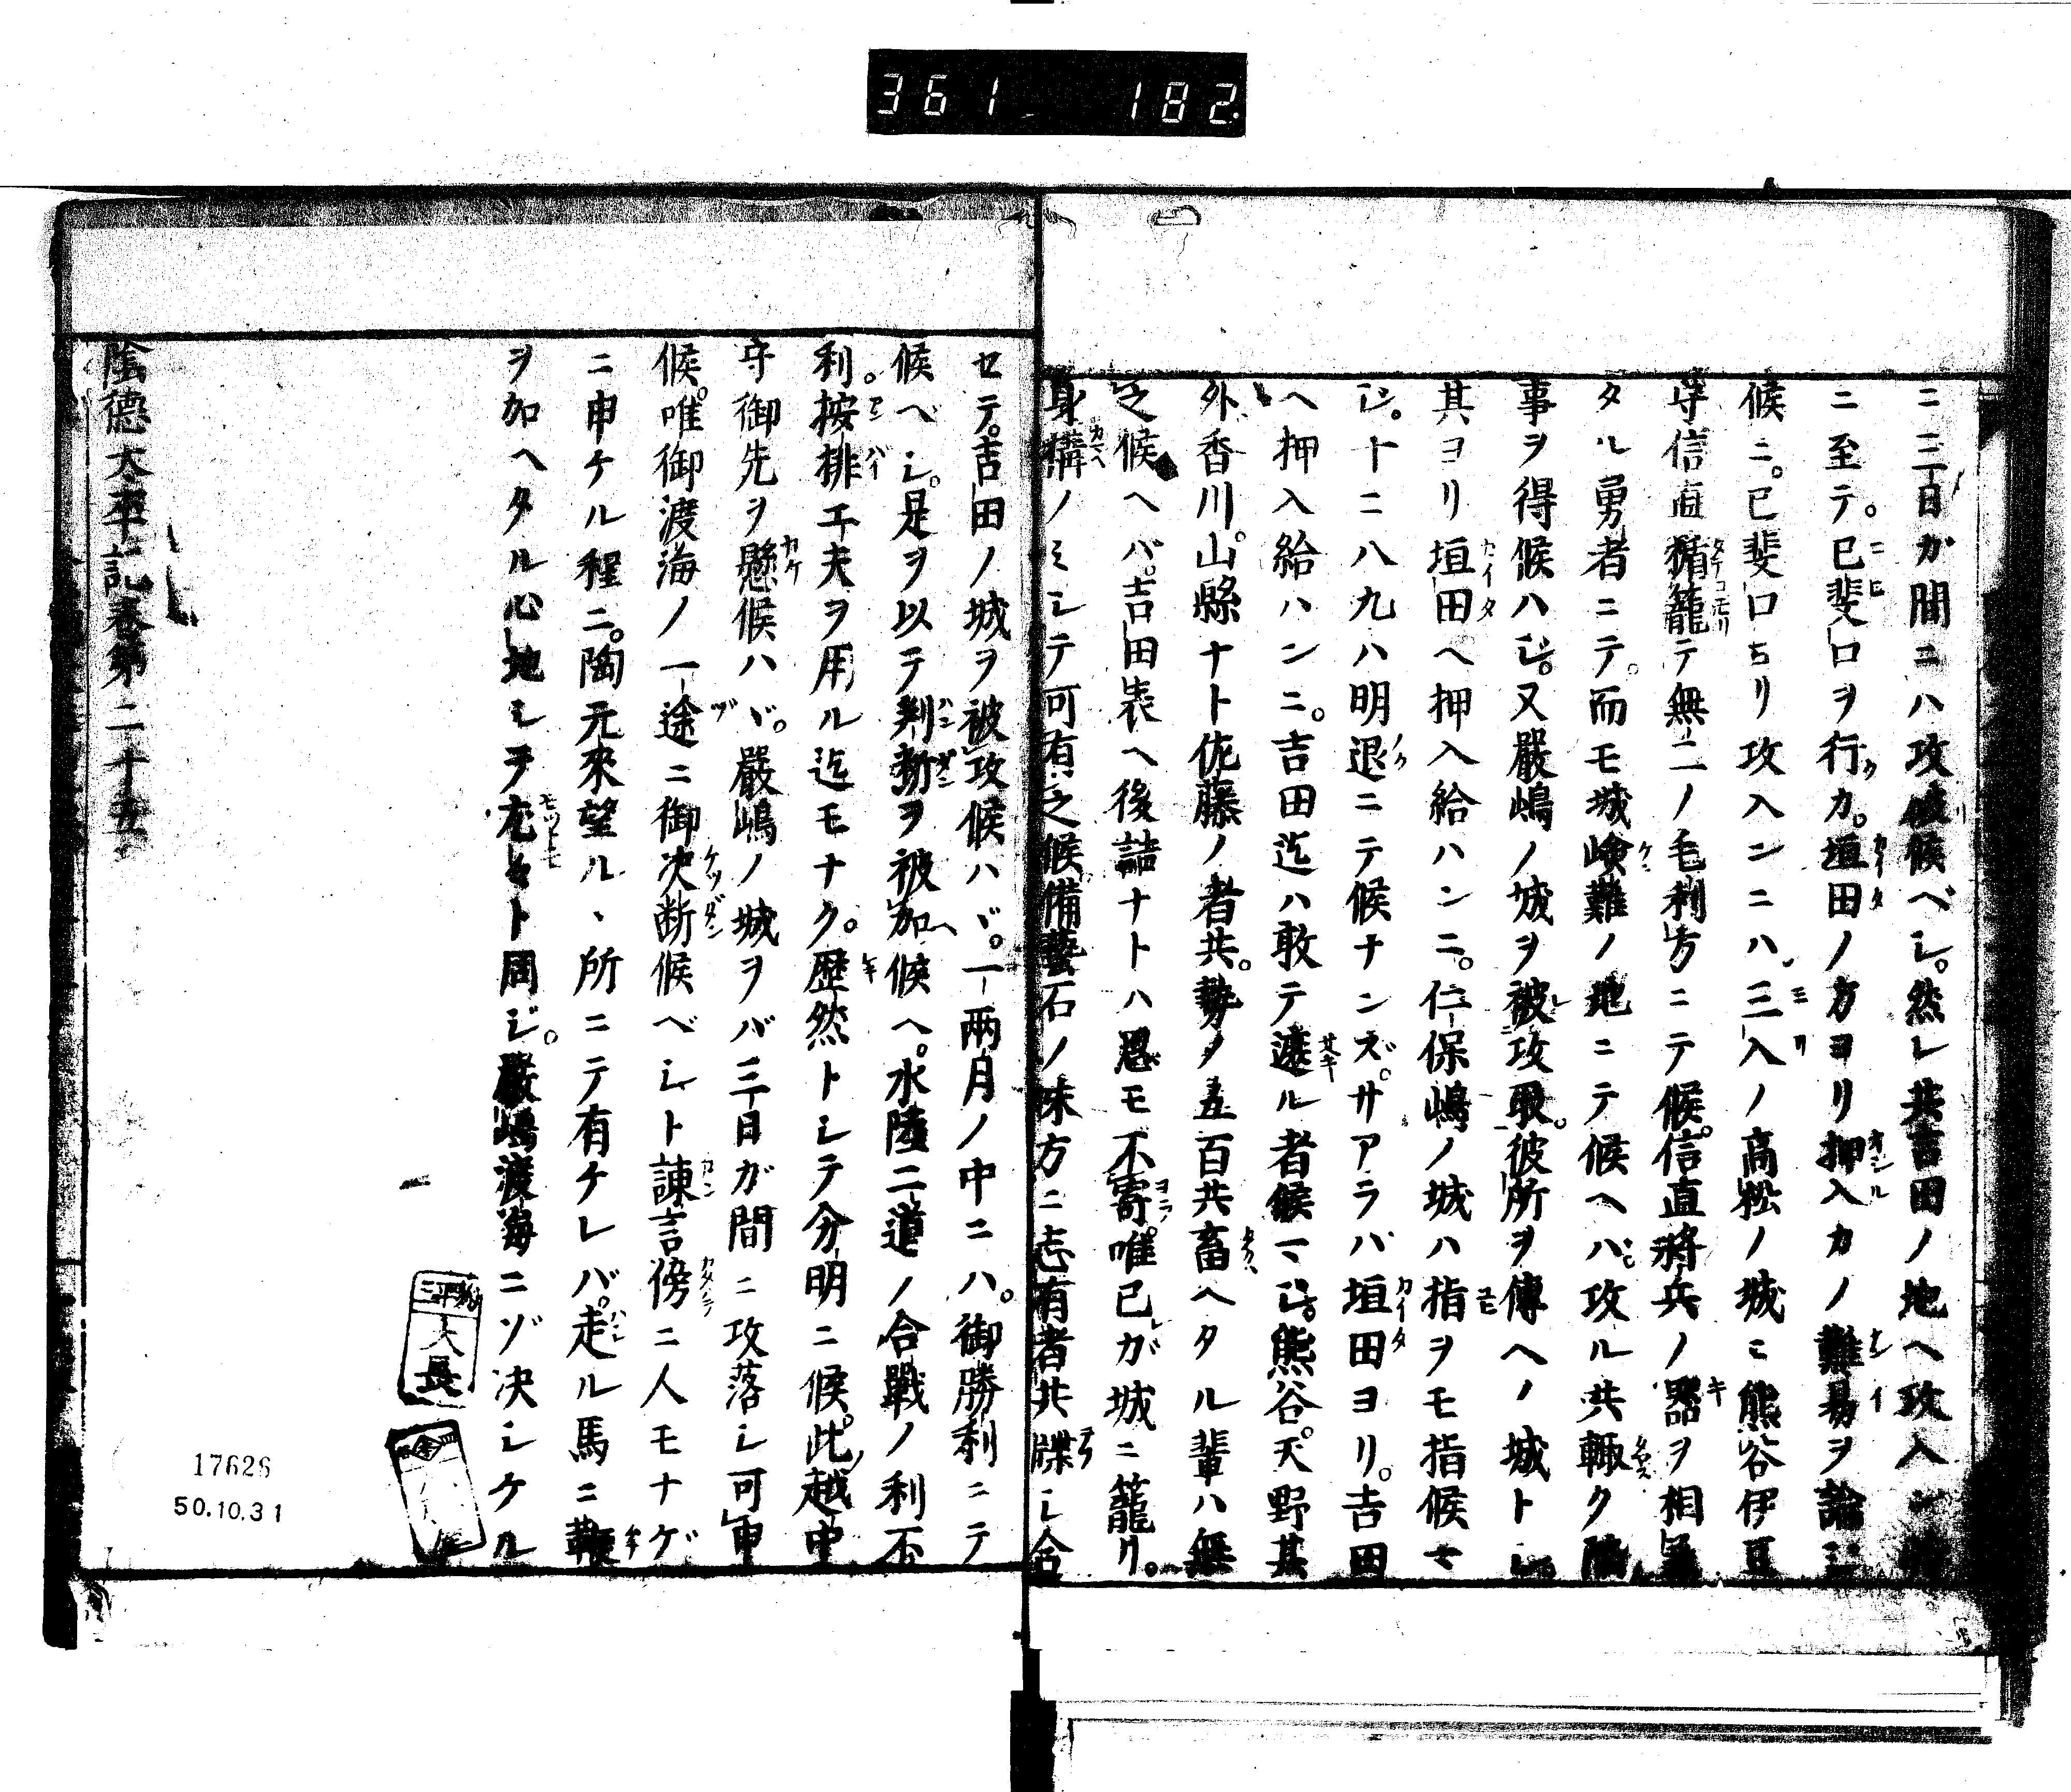 361 182
ニ三日カ間ニハ攻破候ベシ。然レ共吉田ノ地ヘ攻入ン時
ニ至テ。已斐口ヲ行カ。垣田ノ方ヨリ押入カノ難易ヲ論ジ
候ニ。已斐口ヨリ攻入ンニハ三入ノ高松ノ城ニ熊谷伊豆
守信直楯籠テ無二ノ毛利方ニテ候。信直將兵ノ器ヲ相兼
タル勇者ニテ。而モ城嶮難ノ地ニテ候ヘバ。攻ル共輙ク陥
事ヲ得候ハジ。又嚴嶋ノ城ヲ被攻取。彼所ヲ傳ヘノ城トシ
其ヨリ垣田ヘ押入給ハンニ。仁保嶋ノ城ハ指ヲモ指候マ
ジ。十ニ八九ハ明退ニテ候ナンズ。サアラバ垣田ヨリ。吉田
ヘ押入給ハンニ。吉田迄ハ敢テ遮ル者候マジ。熊谷。天野其
外香川。山縣ナト佐藤ノ者共。勢ノ五百共畜ヘタル輩ハ無
之候ヘバ。吉田表ヘ後詰ナトハ思モ不寄。唯已ガ城ニ籠リ。
身構ノミシテ可有之候。備藝石ノ味方ニ志有者共牒シ合
セテ。吉田ノ城ヲ被攻候ハヾ。一兩月ノ中ニハ。御勝利ニテ
候ベシ。是ヲ以テ判断ヲ被加候ヘ。水陸二道ノ合戰ノ利不
利。按排工夫ヲ用ル迄モナク。歴然トシテ分明ニ候。此越中
守御先ヲ懸候ハヾ。嚴嶋ノ城ヲバ三日ガ間ニ攻落シ可申
候。唯御渡海ノ一途ニ御決断候ベシト諫言傍ニ人モナゲ
ニ申ケル程ニ。陶元來望ルヽ所ニテ有ケレバ。走ル馬ニ鞭
ヲ加ヘタル心地シテ尤々ト同ジ。嚴嶋渡海ニゾ决シケル
陰德太平記卷第二十五
大長
17626
50.10.31